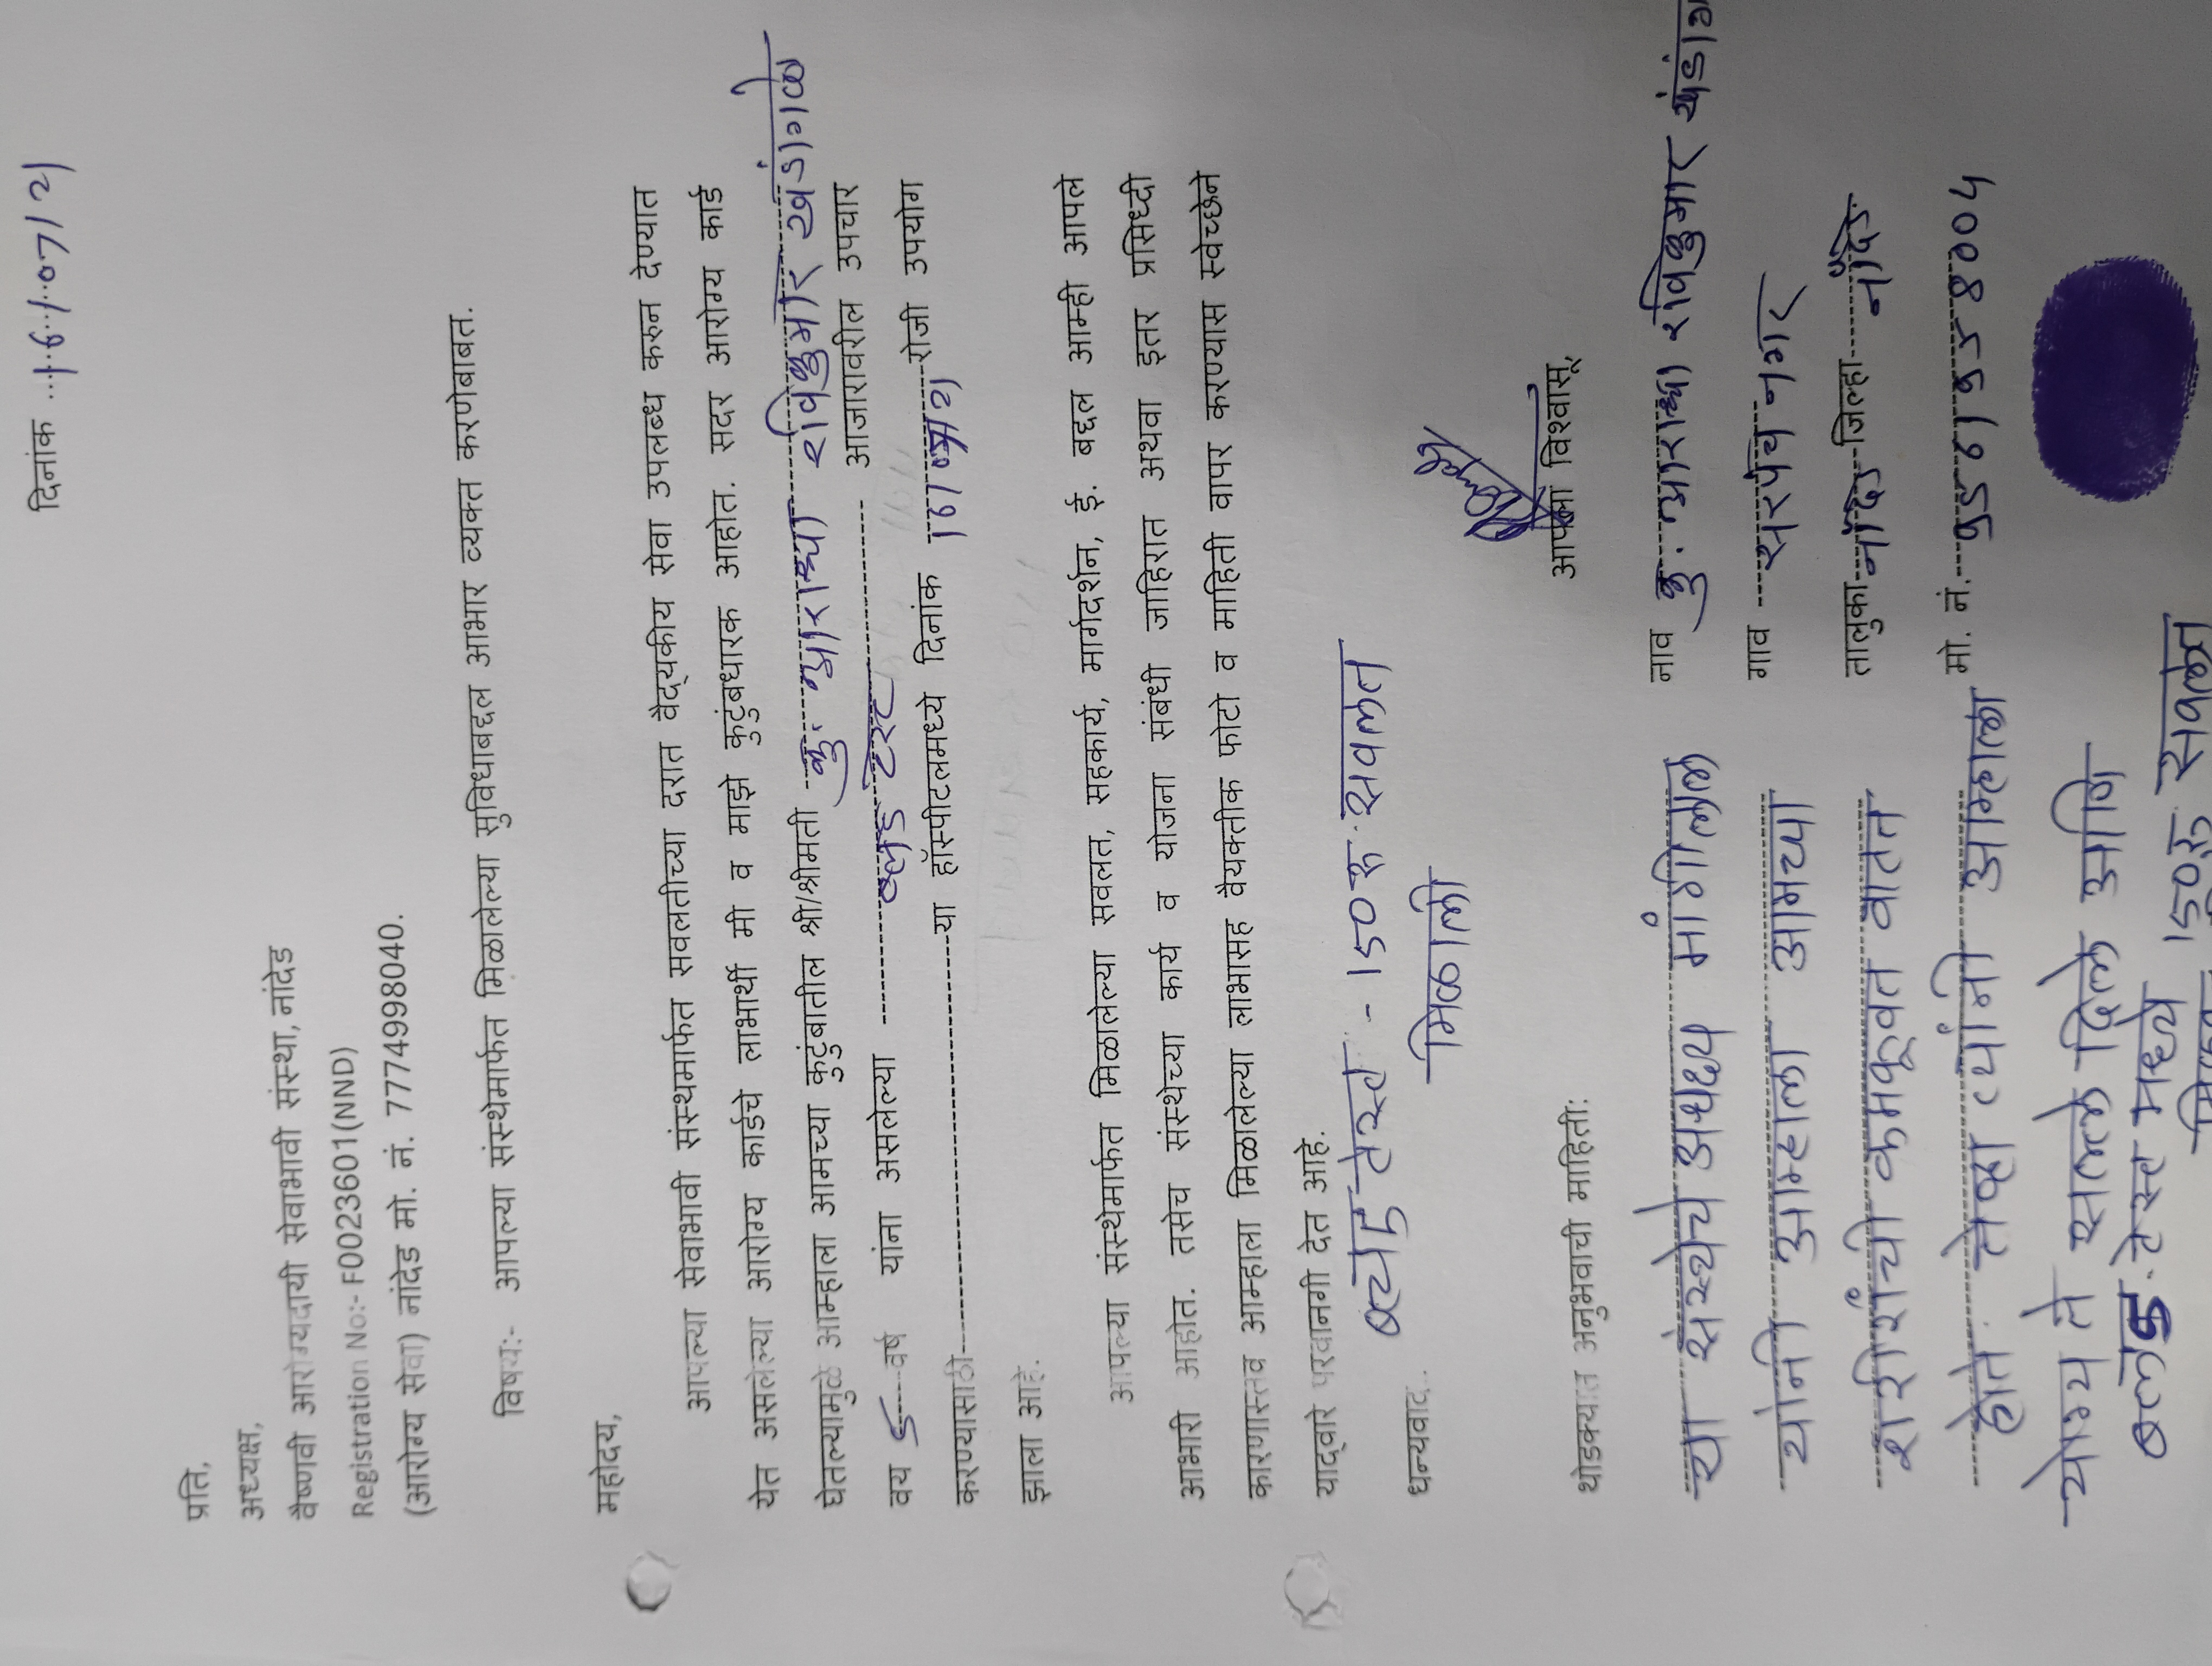 दिनांक 16/07/21
प्रति,
अध्यक्ष,
वैष्णवी आरोग्यदायी सेवाभावी संस्था, नांदेड
Registration No:- F0023601(NND)
(आरोग्य सेवा) नांदेड मो. नं. 7774998040.
विषय:- आपल्या संस्थेमार्फत मिळालेल्या सुविधाबद्दल आभार व्यक्त करणेबाबत.
महोदय,
आपल्या सेवाभावी संस्थमार्फत सवलतीच्या दरात वैद्यकीय सेवा उपलब्ध करुन देण्यात
येत असलेल्या आरोग्य कार्डचे लाभार्थी मी व माझे कुटुंबधारक आहोत. सदर आरोग्य कार्ड
घेतल्यामुळे आम्हाला आमच्या कुटुंबातील श्री/श्रीमती कु. आराध्या रविकुमार खंडागळे
वय 5 वर्ष यांना असलेल्या ब्लड टेस्ट आजारावरील उपचार
करण्यासाठी या हॉस्पीटलमध्ये दिनांक रोजी उपयोग
झाला आहे.
आपल्या संस्थेमार्फत मिळालेल्या सवलत, सहकार्य, मार्गदर्शन, ई. बद्दल आम्ही आपले
आभारी आहोत. तसेच संस्थेच्या कार्य व योजना संबंधी जाहिरात अथवा इतर प्रसिध्दी
कारणास्तव आम्हाला मिळालेल्या लाभासह वैयक्तीक फोटो व माहिती वापर करण्यास स्वेच्छेने
याद्वारे परवानगी देत आहे.
टेस्ट - 150 रु. सवलत
मिळाली
धन्यवाद..
आपला विश्वासू,
थोडक्यात अनुभवाची माहिती:
नाव कु. आराध्या रविकुमार
गाव सरपंच नगर
तालुका नांदेड जिल्हा नांदेड
मो. नं.
या संस्थेचे अध्यक्ष
यांनी आम्हाला आमच्या
शरीराची कमकूवत वाटत
होते. तेव्हा त्यांनी आम्हाला
योग्य ते सल्ले दिले आणि
ब्लड टेस्ट मध्ये 150रु सवलत